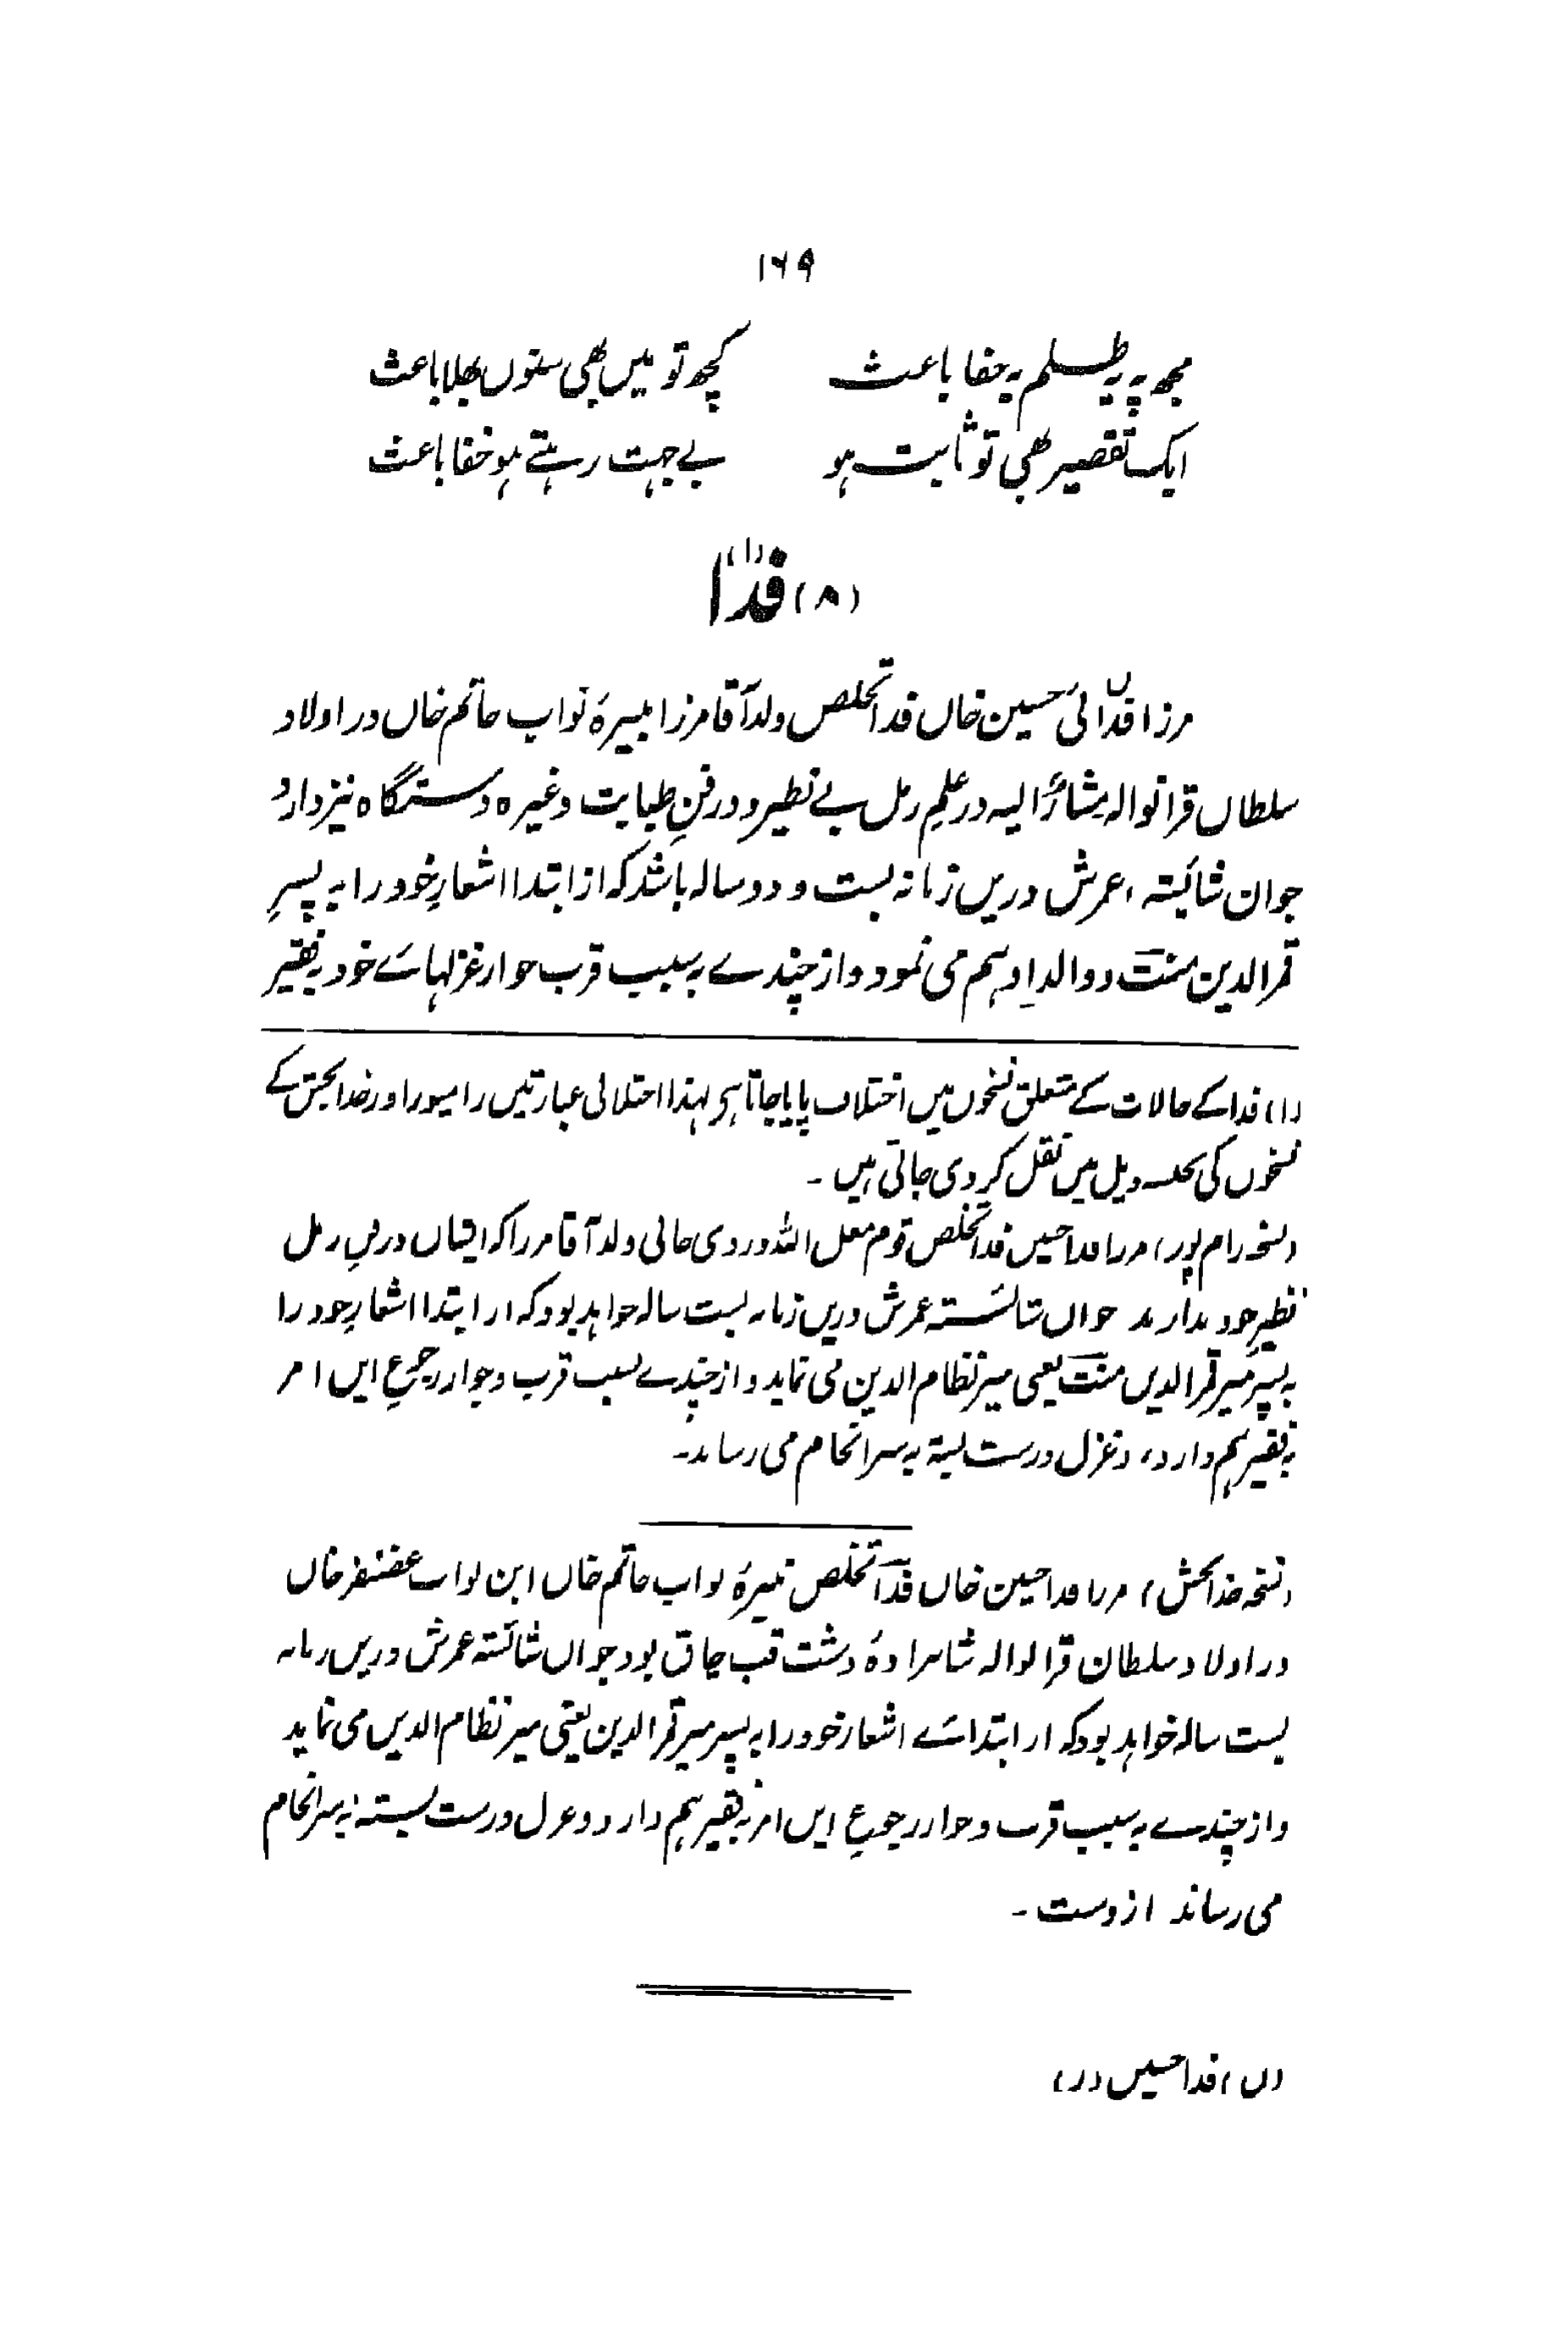 ۱۶۹
مجھ پہ یہ ظلم یہ جفا باعث کچھ تو میں بھی سنوں بھلا باعث
ایک تقصیر بھی تو ثابت ہو بے جہت رہتے ہو خفا باعث
(۸) فدا (۱)
مرزا فدائی حسین خاں فدا تخلص ولد آقا مرزا نبیرۂ نواب حاتم خاں در اولاد
سلطاں قرانوالہ مشارٌ الیہ در علمِ رمل بے نظیر و در فنِ طبابت وغیرہ دستگاہ نیز دارد
جوان شائستہ، عمرش دریں زمانہ بست و دو سالہ باشد کہ از ابتدا اشعارِ خود را بہ پسرِ
قمرالدین منت و والدِ او ہم می نمود و از چندے بہ سبب قرب جوار غزلہائے خود بہ فقیر
(۱) فدا کے حالات کے متعلق نسخوں میں اختلاف پایا جاتا ہے لہذا اختلافی عبارتیں رامپور اور خدا بخش کے
نسخوں کی بجنسہ ذیل میں نقل کر دی جاتی ہیں ۔
(نسخہ رام پور) مرزا فدا حسین فدا تخلص قوم مغل اللہ وردی خانی ولد آقا مرزا کہ ایشاں در فنِ رمل
نظیرِ خود ندارند جوان شائستہ عمرش دریں زمانہ بست سالہ خواہد بود کہ از ابتدا اشعارِ خود را
بہ پسرِ میر قمرالدین منت یعنی میر نظام الدین می نماید و از چندے بسبب قرب و جوار رجوعِ ایں امر
بہ فقیر ہم دارد، و غزل درست بستہ بہ سرانجام می رساند۔
(نسخہ خدا بخش) مرزا فدا حسین خاں فدا تخلص نبیرۂ نواب حاتم خاں ابن نواب غضنفر خاں
در اولاد سلطان قرانوالہ شاہزادۂ دشت قب چاق بود جوان شائستہ عمرش دریں زمانہ
بست سالہ خواہد بود کہ از ابتدائے اشعار خود را بہ پسر میر قمرالدین یعنی میر نظام الدین می نماید
و از چندے بہ سبب قرب و جوار رجوعِ ایں امر بہ فقیر ہم دارد و غزل درست بستہ بہ سرانجام
می رساند از وست ۔
(ں) فدا حسین (ر)